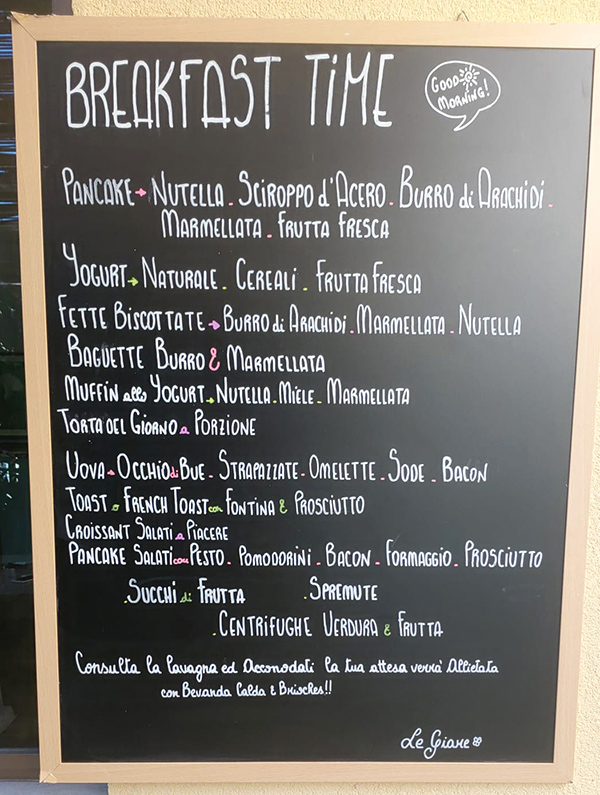 BREAKFAST TIME
GOOD
MORNING!
PANCAKE → NUTELLA - SCIROPPO d'ACERO - BURRO di ARACHIDI -
MARMELLATA - FRUTTA FRESCA
YOGURT → NATURALE - CEREALI - FRUTTA FRESCA
FETTE BISCOTTATE → BURRO di ARACHIDI - MARMELLATA - NUTELLA
BAGUETTE BURRO & MARMELLATA
MUFFIN allo YOGURT → NUTELLA - MIELE - MARMELLATA
TORTA DEL GIORNO a PORZIONE
UOVA → OCCHIO di BUE - STRAPAZZATE - OMELETTE - SODE - BACON
TOAST o FRENCH TOAST con FONTINA & PROSCIUTTO
CROISSANT SALATI a PIACERE
PANCAKE SALATI con PESTO - POMODORINI - BACON - FORMAGGIO - PROSCIUTTO
.SUCCHI di FRUTTA .SPREMUTE
.CENTRIFUGHE VERDURA & FRUTTA
Consulta la lavagna ed Accomodati la tua attesa verrà Allietata
con Bevanda Calda & Brioches!!
Le Giare